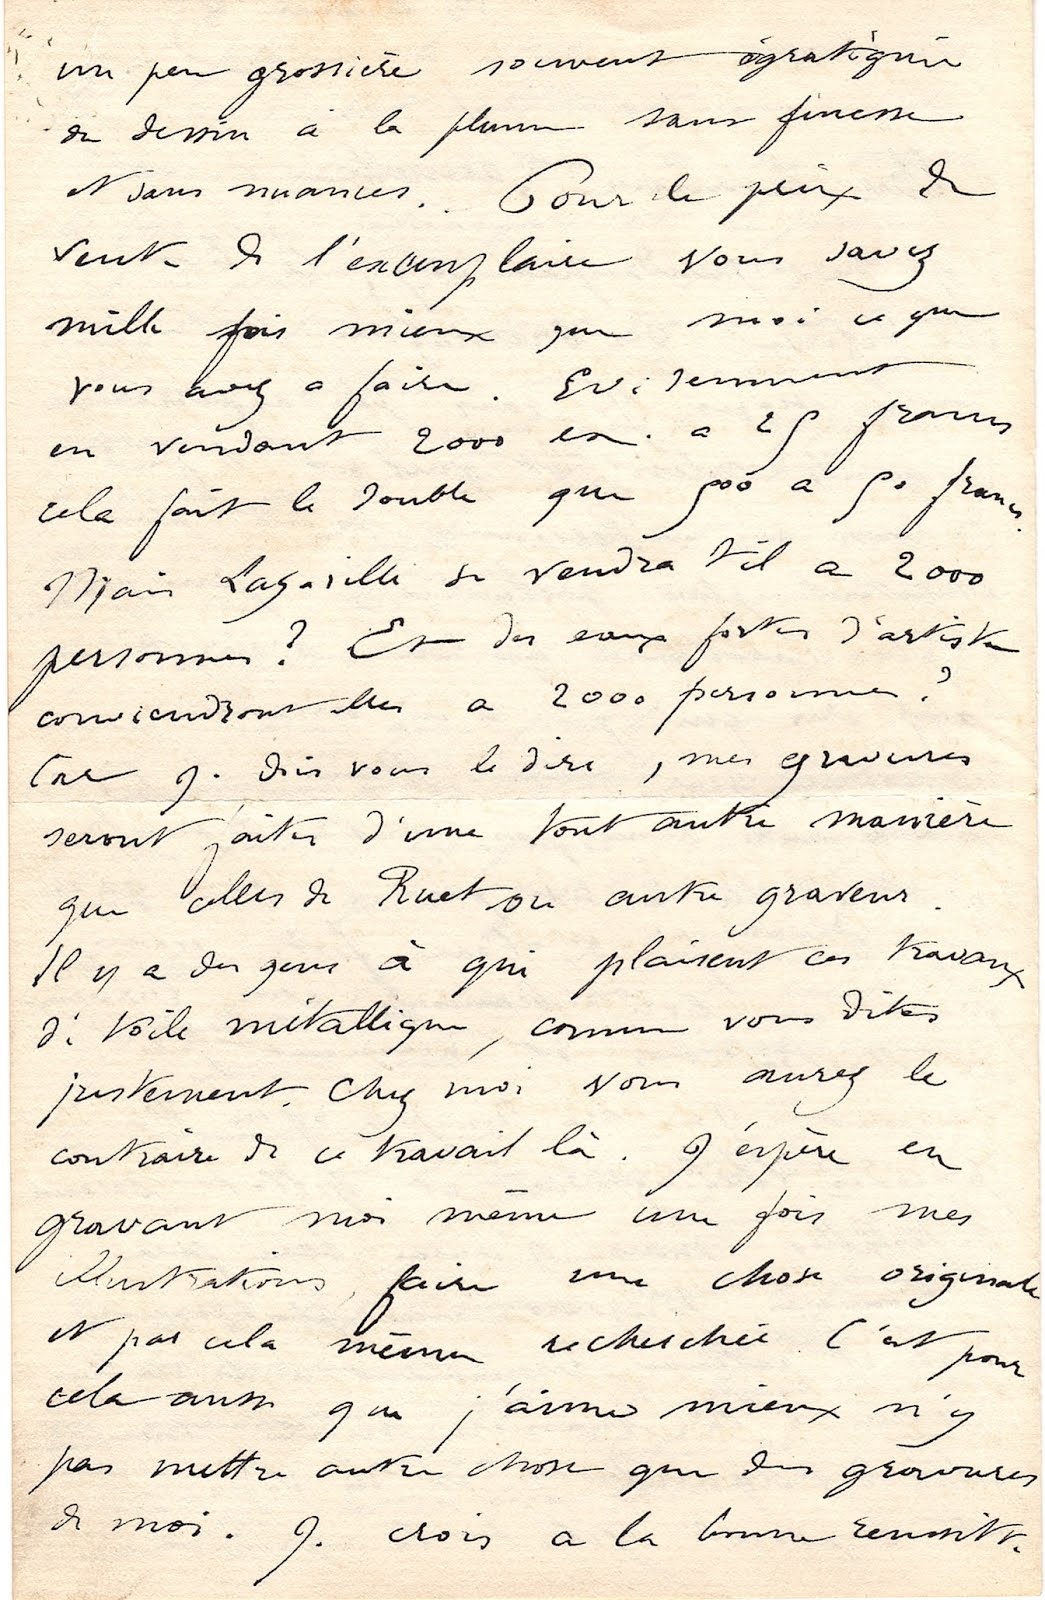 un peu grossière souvent égratignée
du dessin à la plume sans finesse
et sans nuances. Pour le prix de
vente de l'exemplaire vous savez
mille fois mieux que moi ce que
vous avez a faire. Evidemment
en vendant 2000 ex. a 25 francs
cela fait le double que 500 a 50 francs.
Mais se vendra t'il a 2000
personnes? Et des eaux fortes d'artiste
conviendront elles a 2000 personnes?
Car je dois vous le dire, mes gravures
seront faites d'une tout autre manière
que celles de Ruet ou autre graveur.
Il y a des gens à qui plaisent ces travaux
de toile métallique, comme vous dites
justement. Chez moi vous aurez le
contraire de ce travail là. J'espère en
gravant moi même une fois mes
illustrations, faire une chose originale
et par cela même recherchée. C'est pour
cela aussi que j'aime mieux n'y
pas mettre autre chose que des gravures
de moi. Je crois a la bonne réussite.